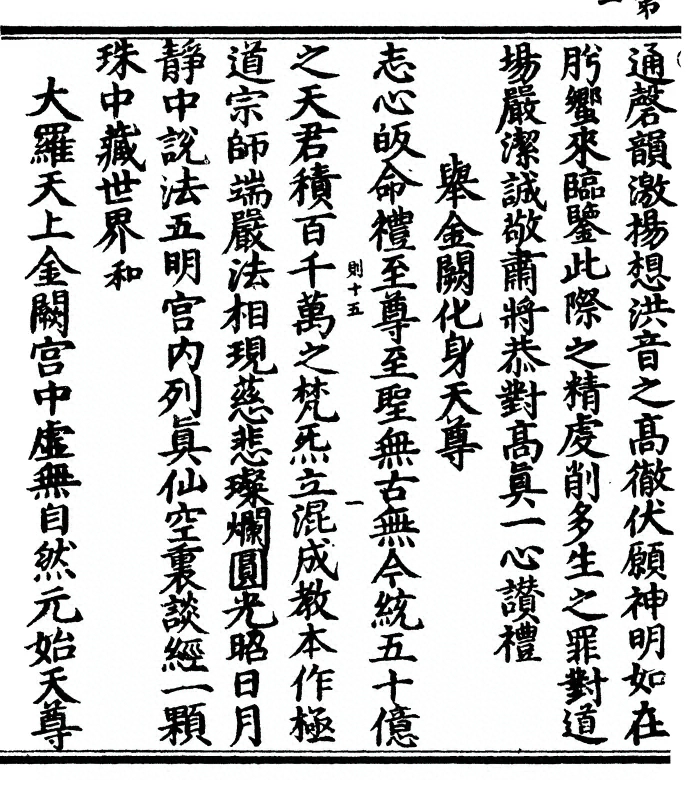 第
通磬韻激揚想洪音之高徹伏願神明如在
肹蠁來臨鑒此際之精虔削多生之罪對道
場嚴潔誠敬肅將恭對高眞一心讃禮
舉金闕化身天尊
志心皈命禮至尊至聖無古無今統五十億
則十五
一
之天君積百千萬之梵炁立混成教本作極
道宗師端嚴法相現慈悲璨爛圓光昭日月
靜中説法五明宫内列眞仙空裏談經一顆
珠中藏世界和
大羅天上金闕宫中虛無自然元始天尊